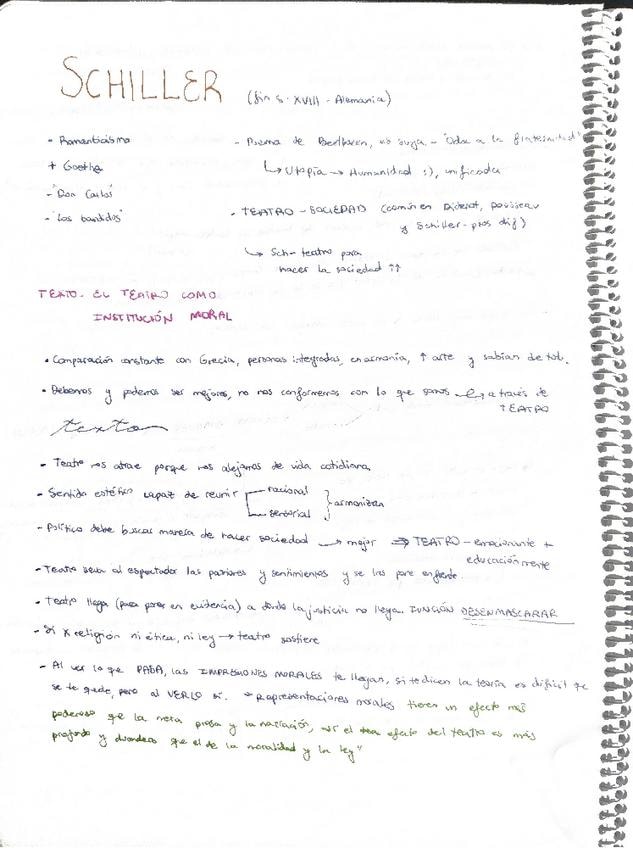 SCHILLER (fin s. XVIII - Alemania)
- Romanticismo
+ Goethe
- "Don Carlos"
- "Los bandidos"
- Poema de Beethoven, no suya - "Oda a la fraternidad"
↳ Utopía → Humanidad :), unificada
- TEATRO - SOCIEDAD (común en Diderot, Rousseau
y Schiller - pros dif)
↳ Sch - teatro para
hacer la sociedad ↑↑
TEXTO - EL TEATRO COMO
INSTITUCIÓN MORAL
• Comparación constante con Grecia, personas integradas, en armonía, ↑ arte y sabían de todo.
• Debemos y podemos ser mejores, no nos conformemos con lo que somos → a través de
TEATRO
texto
- Teatro nos atrae porque nos alejamos de vida cotidiana
- Sentido estético capaz de reunir racional
sensorial } armonizan
- Político debe buscar manera de hacer sociedad → mejor ⇒ TEATRO - emocionante +
educación mente
- Teatro al espectador las pasiones y sentimientos y se las pone enfrente.
- Teatro llega (para poner en evidencia) a donde la justicia no llega. FUNCIÓN DESENMASCARAR
- Si x religión ni ética, ni ley → teatro sostiene
- Al ver lo que PASA, las IMPRESIONES MORALES te llegan, si te dicen la teoría es difícil que
se te quede, pero al VERLO sí. "Representaciones morales tienen un efecto más
poderoso que la mera prosa y la narración, así el efecto del teatro es más
profundo y duradero que el de la moralidad y la ley"